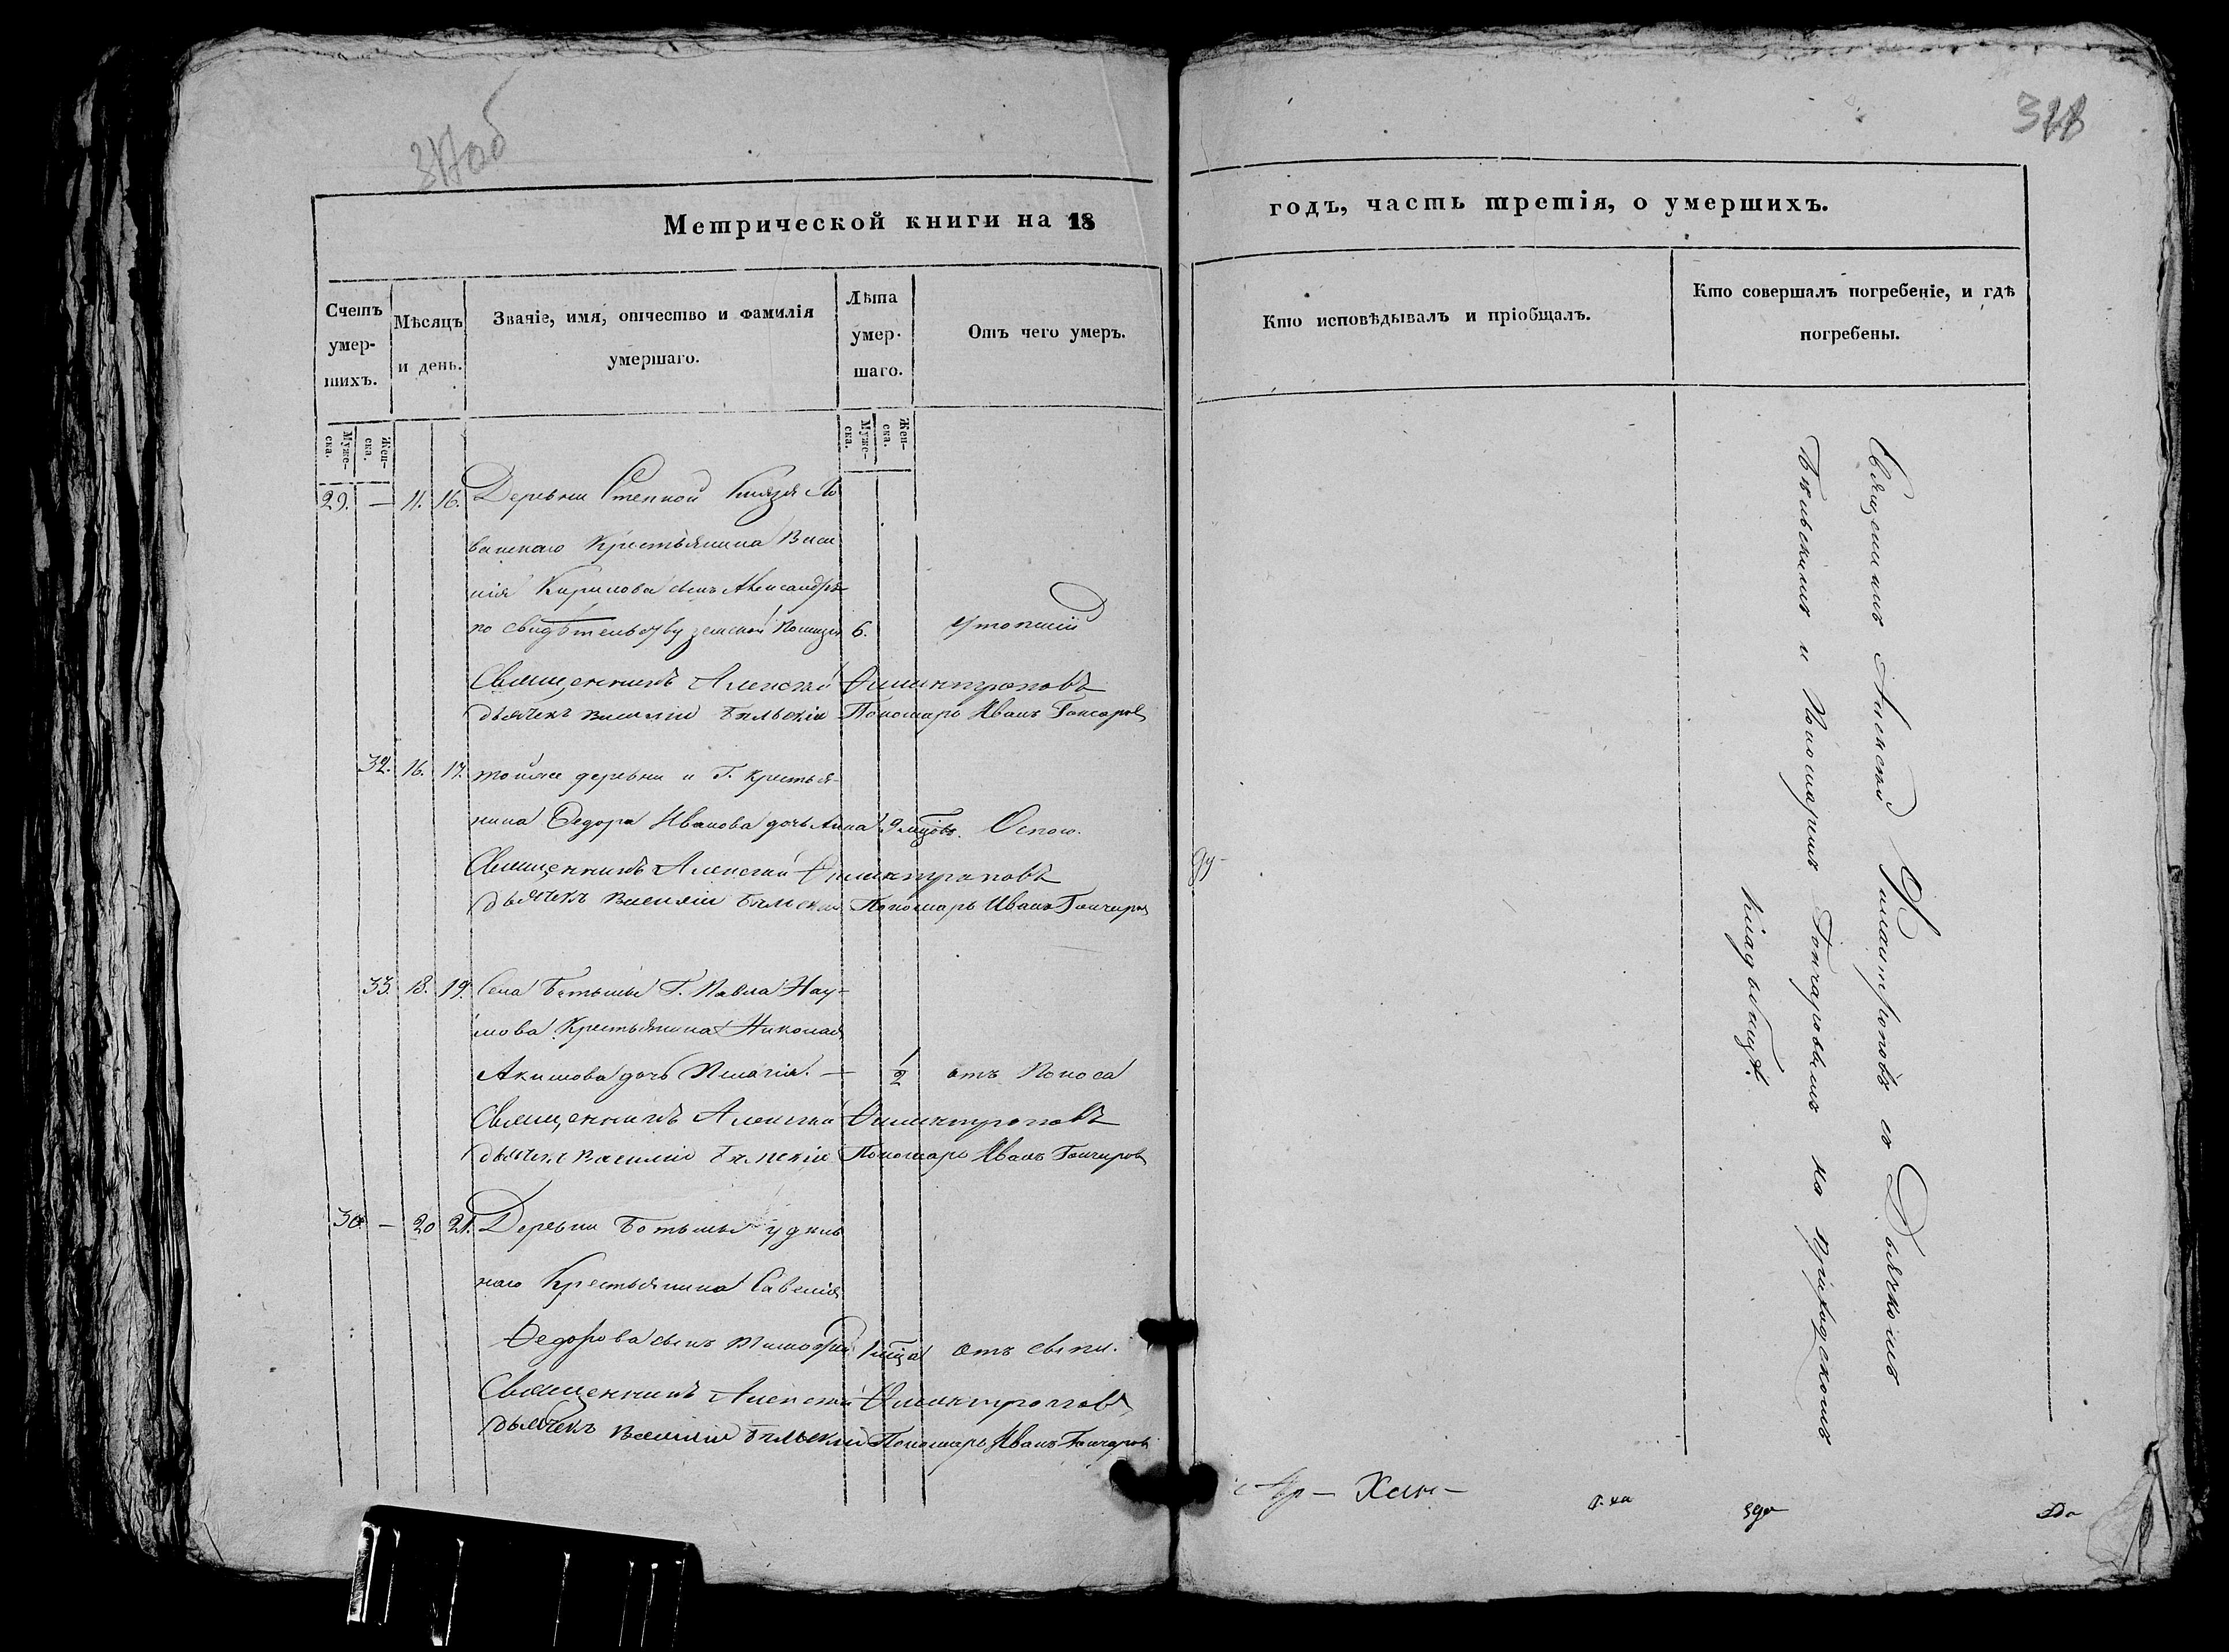 317об
318
Метрической книги на 18
годъ, часть третія, о умершихъ.
Счетъ умер-шихъ.
Мѣсяцъ и день.
Званіе, имя, отчество и фамилія умершаго.
Лѣта умер-шаго.
Отъ чего умеръ.
Кто исповѣдывалъ и пріобщалъ.
Кто совершалъ погребеніе, и гдѣ погребены.
Муже-ска.
Жен-ска.
Муже-ска.
Жен-ска.
29. — 11. 16. Деревни Степной Князя
Крестьянина Васи
лія Кирилова сынъ Александръ
по свидѣтельству земской Полиціи 6. утопшій
Священникъ Алексѣй Филантроповъ
дьячекъ Василій Бѣльскій Пономарь Иванъ Гончаровъ
32. 16. 17. тойже деревни и Г. крестья-
нина Федора Иванова дочь Анна 9 мцовъ. Оспою.
Священникъ Алексѣй Филантроповъ
дьячекъ Василій Бѣльскій Пономарь Иванъ Гончаровъ
33. 18. 19. Села Ботьмы Г. Павла Нау-
мова Крестьянина Николая
Акимова дочь Пелагія. — 1/2 отъ Поноса
Священникъ Алексѣй Филантроповъ
дьячекъ Василій Бѣльскій Пономарь Иванъ Гончаровъ
30. — 20 21. Деревни Ботьмы удѣль
наго Крестьянина Савелія
Федорова сынъ Тимофей 1 мца отъ сыпи.
Священникъ Алексѣй Филантроповъ
дьячекъ Василій Бѣльскій Пономарь Иванъ Гончаровъ
Священникъ Алексѣй Филантроповъ съ Дьячкомъ
Бѣльскимъ и Пономаремъ Гончаровымъ на приходскомъ
кладбищѣ.